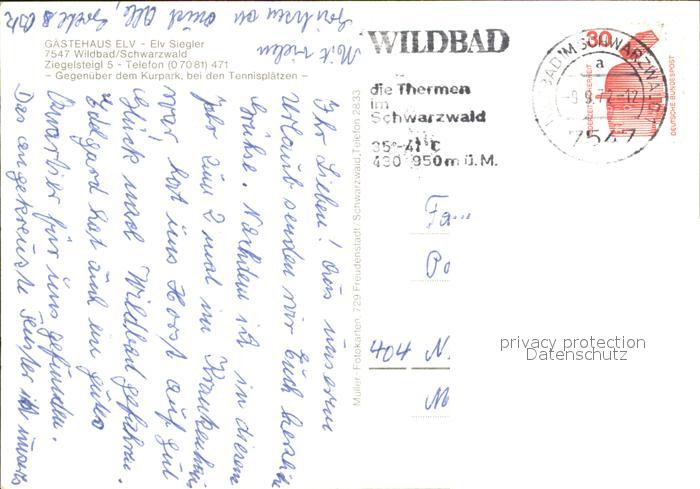 GÄSTEHAUS ELV - Elv Siegler
7547 Wildbad/Schwarzwald
Ziegelsteig 5 - Telefon (07081) 471
– Gegenüber dem Kurpark, bei den Tennisplätzen –
Ihr Lieben! Aus unserem
Urlaub senden wir Euch herzliche
Grüße. Nachdem ich in diesem
Jahr zum 2 mal im Krankenhaus
war, hat uns Horst auf gut
Glück nach Wildbad gefahren.
Edelgard hat auch ein gutes
Quartier für uns gefunden.
Das angekreuzte Fenster ist unser
Mit vielen
Grüßen an Euch Alle,
Müller-Fotokarten, 729 Freudenstadt/Schwarzwald, Telefon 2833
WILDBAD
die Thermen
im
Schwarzwald
35°-41°C
430-950m ü.M.
WILDBAD IM SCHWARZWALD
a
7547
30
JEDERZEIT SICHERHEIT
DEUTSCHE BUNDESPOST
Fa
Po
404 N
M
privacy protection
Datenschutz